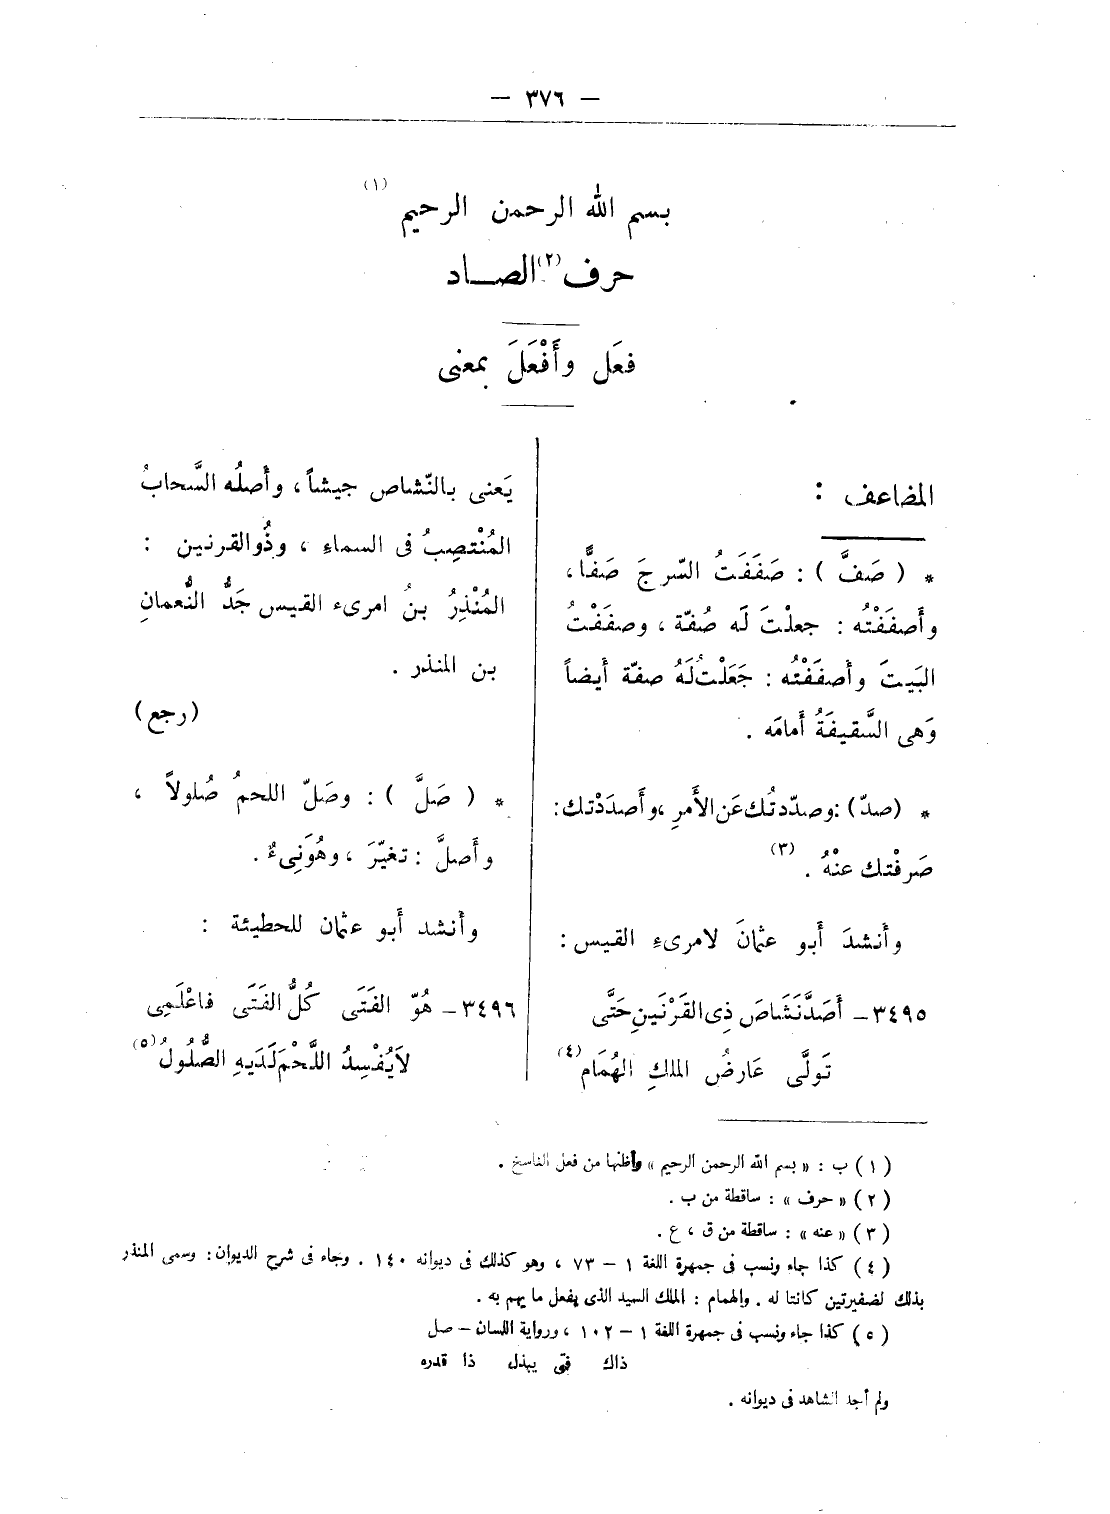 — ٣٧٦ —
بسم الله الرحمن الرحيم (١)
حرف (٢) الصـــاد
فعَل وأَفْعَلَ بمعنى
المضاعف :
* ( صَفَّ ) : صَفَفَتُ السّرجَ صَفًّا ،
وأَصفَفْتُه : جعلْتَ لَه صُفّة ، وصفَفْتُ
البَيتَ وأَصفَفْتُه : جَعَلْتُ لَهُ صفّة أَيضاً
وَهى السَّقيفَةُ أَمامَه .
* (صدّ) : وصدّدتُك عَن الأَمرِ ، وأَصدَدْتك :
صَرفْتك عنْهُ . (٣)
وأَنشدَ أَبو عثمانَ لامرىءِ القيس :
٣٤٩٥ – أَصَدَّ نَشَاصَ ذِى القَرْنَينِ حَتَّى
تَولَّى عَارضُ الملكِ الهُمَام (٤)
يَعنى بالنّشاص جيشاً ، وأَصلُه السَّحابُ
المُنْتصِبُ فى السماءِ ، وذُو القرنين :
المُنْذِرُ بنُ امرىء القيس جَدُّ النُّعمانِ
بن المنذر .
(رجع)
* ( صَلَّ ) : وصَلّ اللحمُ صُلولاً ،
وأَصلَّ : تغيّرَ ، وهُوَ نِىءٌ .
وأَنشد أَبو عثمان للحطيئة :
٣٤٩٦ – هُوّ الفَتَى كُلُّ الفَتَى فاعْلَمِى
لاَ يُفْسِدُ اللَّحْمَ لَدَيهِ الصُّلُولُ (٥)
(١) ب : « بسم الله الرحمن الرحيم » وأظنها من فعل الناسخ .
(٢) « حرف » : ساقطة من ب .
(٣) « عنه » : ساقطة من ق ، ع .
(٤) كذا جاء ونسب فى جمهرة اللغة ١ – ٧٣ ، وهو كذلك فى ديوانه ١٤٠ . وجاء فى شرح الديوان : وسمى المنذر
بذلك لضفيرتين كانتا له . والهمام : الملك السيد الذى يفعل ما يهم به .
(٥) كذا جاء ونسب فى جمهرة اللغة ١ – ١٠٢ ، ورواية اللسان – صل
ذاك فتى يبذل ذا قدره
ولم أجد الشاهد فى ديوانه .